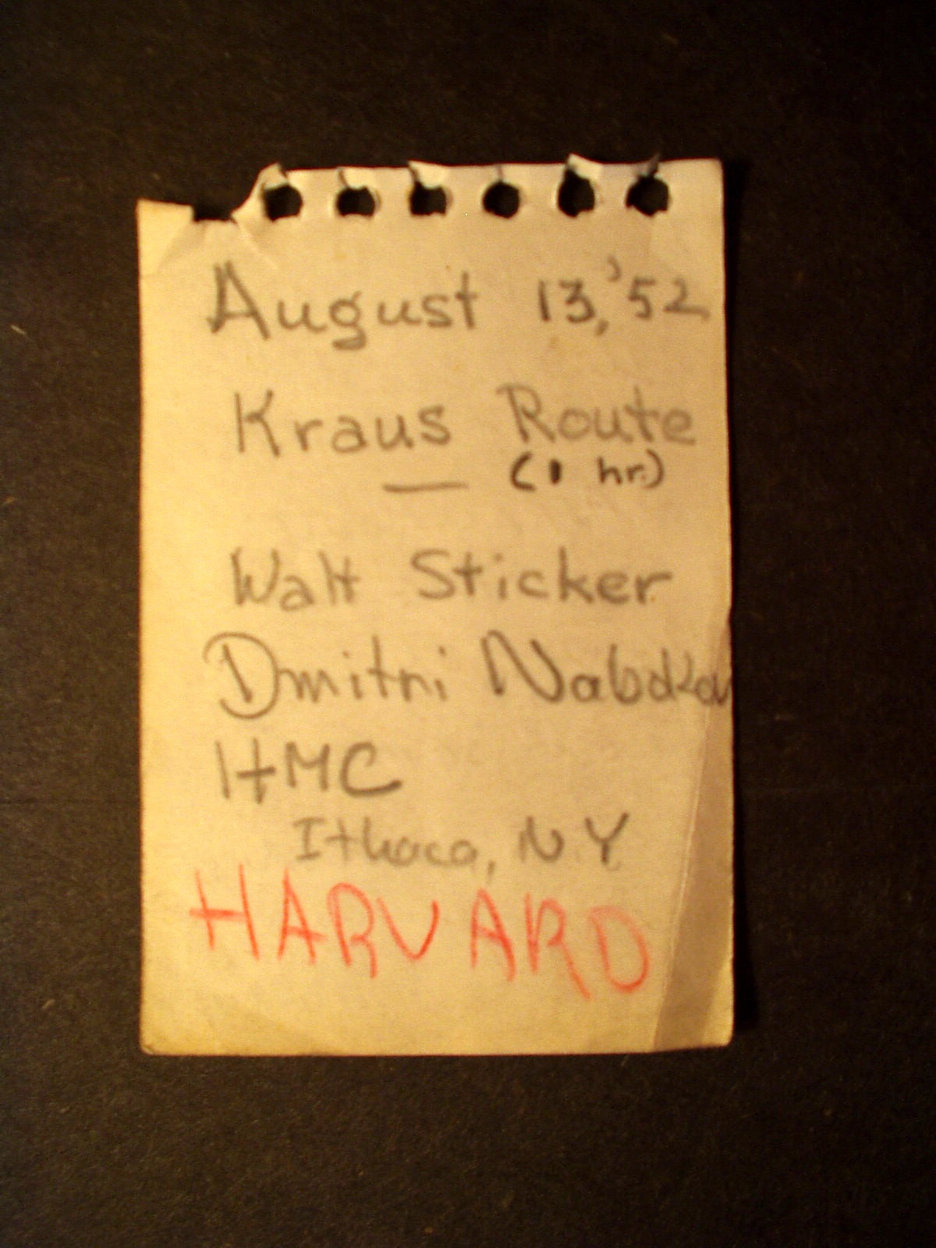 August 13, '52
Kraus Route
(1 hr.)
Walt Sticker
Dmitri Nabokov
HMC
Ithaca, NY
HARVARD